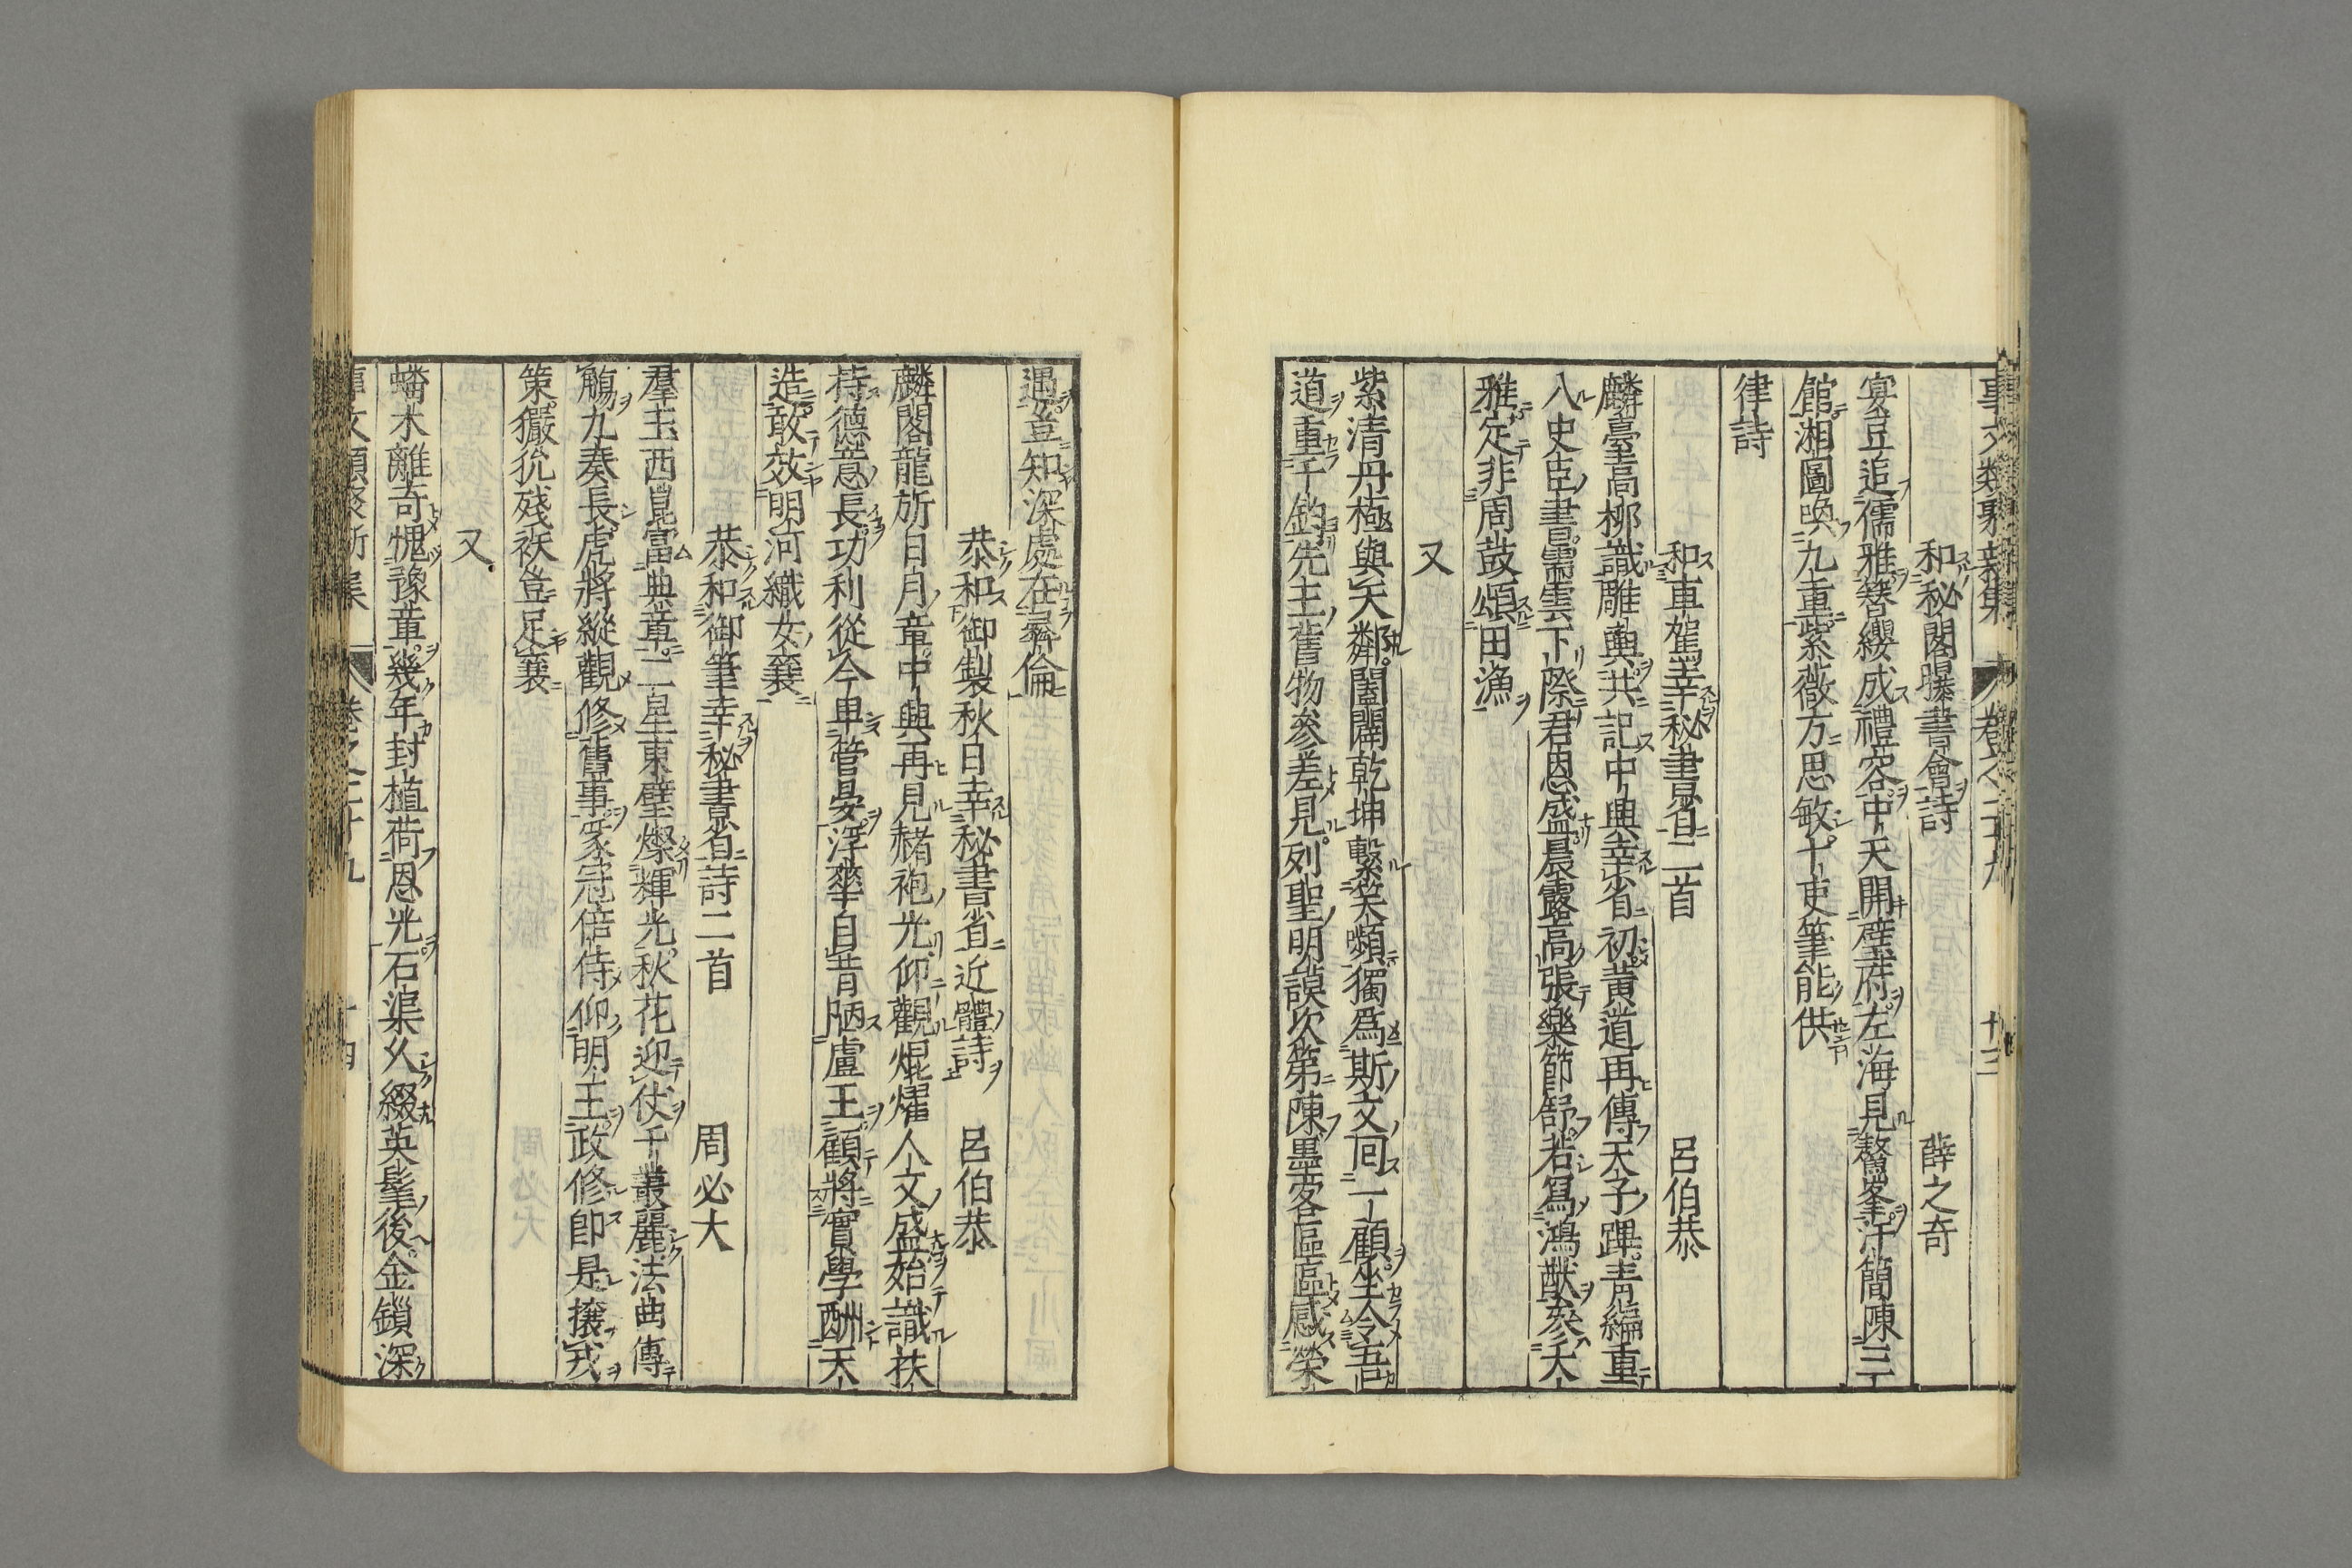 事文類聚新集 卷之二十九 十三
和秘閣曝書會詩 薛之奇
宴豆追儒雅簪纓成禮容中天開壁府左海見鰲峯汗簡陳三
館湘圖喚九重紫薇方思敏十吏筆能供
律詩
和車駕幸秘書省二首 呂伯恭
麟臺高柳識雕輿共記中興幸省初黃道再傳天子蹕青編重
入史臣書需雲下際君恩盛晨露高張樂節舒若寫鴻猷參大
雅定非周鼓頌田漁
又
紫清丹極與天鄰闔闢乾坤繫笑嚬獨爲斯文囘一顧坐令吾
道重千鈞先王舊物參差見列聖明謨次第陳墨客區區感榮
遇豈知深處在彜倫
恭和御製秋日幸秘書省近體詩 呂伯恭
麟閣龍旂日月章中興再見赭袍光仰觀焜燿人文盛始識扶
持德意長功利從今卑管晏浮華自昔陋盧王顧將實學酬天
造敢效明河織女襄
恭和御筆幸秘書省詩二首 周必大
羣玉西崑富典章二星東壁燦輝光秋花迎仗千叢麗法曲傳
觴九奏長虎將縱觀修舊事豸冠倍侍仰明王政修卽是攘戎
策玁狁殘祅豈足襄
又
蟠木離奇愧豫章幾年封植荷恩光石渠久綴英髦後金鎖深
事文類聚新集 卷之二十九 十四